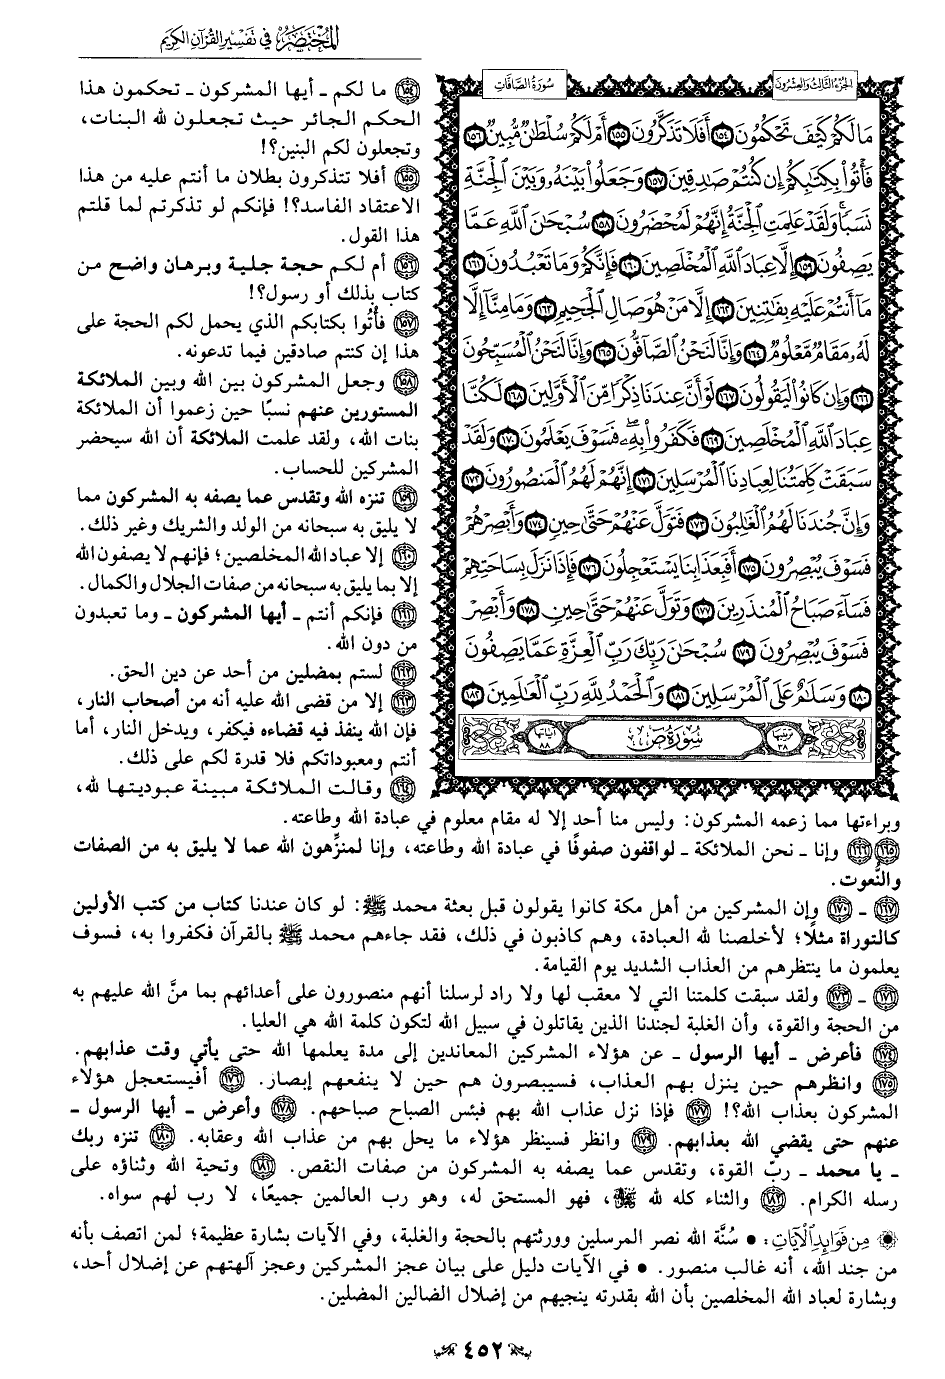 المختصر في تفسير القرآن الكريم
الجزء الثالث والعشرون
سورة الصافات
مَا لَكُمْ كَيْفَ تَحْكُمُونَ ١٥٤ أَفَلَا تَذَكَّرُونَ ١٥٥ أَمْ لَكُمْ سُلْطَانٌ مُّبِينٌ ١٥٦
فَأْتُوا بِكِتَابِكُمْ إِن كُنتُمْ صَادِقِينَ ١٥٧ وَجَعَلُوا بَيْنَهُ وَبَيْنَ الْجِنَّةِ
نَسَبًا وَلَقَدْ عَلِمَتِ الْجِنَّةُ إِنَّهُمْ لَمُحْضَرُونَ ١٥٨ سُبْحَانَ اللَّهِ عَمَّا
يَصِفُونَ ١٥٩ إِلَّا عِبَادَ اللَّهِ الْمُخْلَصِينَ ١٦٠ فَإِنَّكُمْ وَمَا تَعْبُدُونَ ١٦١
مَا أَنتُمْ عَلَيْهِ بِفَاتِنِينَ ١٦٢ إِلَّا مَنْ هُوَ صَالِ الْجَحِيمِ ١٦٣ وَمَا مِنَّا إِلَّا
لَهُ مَقَامٌ مَّعْلُومٌ ١٦٤ وَإِنَّا لَنَحْنُ الصَّافُّونَ ١٦٥ وَإِنَّا لَنَحْنُ الْمُسَبِّحُونَ
١٦٦ وَإِن كَانُوا لَيَقُولُونَ ١٦٧ لَوْ أَنَّ عِندَنَا ذِكْرًا مِّنَ الْأَوَّلِينَ ١٦٨ لَكُنَّا
عِبَادَ اللَّهِ الْمُخْلَصِينَ ١٦٩ فَكَفَرُوا بِهِ فَسَوْفَ يَعْلَمُونَ ١٧٠ وَلَقَدْ
سَبَقَتْ كَلِمَتُنَا لِعِبَادِنَا الْمُرْسَلِينَ ١٧١ إِنَّهُمْ لَهُمُ الْمَنصُورُونَ ١٧٢
وَإِنَّ جُندَنَا لَهُمُ الْغَالِبُونَ ١٧٣ فَتَوَلَّ عَنْهُمْ حَتَّىٰ حِينٍ ١٧٤ وَأَبْصِرْهُمْ
فَسَوْفَ يُبْصِرُونَ ١٧٥ أَفَبِعَذَابِنَا يَسْتَعْجِلُونَ ١٧٦ فَإِذَا نَزَلَ بِسَاحَتِهِمْ
فَسَاءَ صَبَاحُ الْمُنذَرِينَ ١٧٧ وَتَوَلَّ عَنْهُمْ حَتَّىٰ حِينٍ ١٧٨ وَأَبْصِرْ
فَسَوْفَ يُبْصِرُونَ ١٧٩ سُبْحَانَ رَبِّكَ رَبِّ الْعِزَّةِ عَمَّا يَصِفُونَ
١٨٠ وَسَلَامٌ عَلَى الْمُرْسَلِينَ ١٨١ وَالْحَمْدُ لِلَّهِ رَبِّ الْعَالَمِينَ ١٨٢
ترتيبها ٣٨ سورة ص آياتها ٨٨
١٥٤ ما لكم ـ أيها المشركون ـ تحكمون هذا
الحكم الجائر حيث تجعلون لله البنات،
وتجعلون لكم البنين؟!
١٥٥ أفلا تتذكرون بطلان ما أنتم عليه من هذا
الاعتقاد الفاسد؟! فإنكم لو تذكرتم لما قلتم
هذا القول.
١٥٦ أم لكم حجة جلية وبرهان واضح من
كتاب بذلك أو رسول؟!
١٥٧ فأْتُوا بكتابكم الذي يحمل لكم الحجة على
هذا إن كنتم صادقين فيما تدعونه.
١٥٨ وجعل المشركون بين الله وبين الملائكة
المستورين عنهم نسبًا حين زعموا أن الملائكة
بنات الله، ولقد علمت الملائكة أن الله سيحضر
المشركين للحساب.
١٥٩ تنزه الله وتقدس عما يصفه به المشركون مما
لا يليق به سبحانه من الولد والشريك وغير ذلك.
١٦٠ إلا عباد الله المخلصين؛ فإنهم لا يصفون الله
إلا بما يليق به سبحانه من صفات الجلال والكمال.
١٦١ فإنكم أنتم ـ أيها المشركون ـ وما تعبدون
من دون الله.
١٦٢ لستم بمضلين من أحد عن دين الحق.
١٦٣ إلا من قضى الله عليه أنه من أصحاب النار،
فإن الله ينفذ فيه قضاءه فيكفر، ويدخل النار، أما
أنتم ومعبوداتكم فلا قدرة لكم على ذلك.
١٦٤ وقالت الملائكة مبينة عبوديتها لله،
وبراءتها مما زعمه المشركون: وليس منا أحد إلا له مقام معلوم في عبادة الله وطاعته.
١٦٥ ١٦٦ وإنا ـ نحن الملائكة ـ لواقفون صفوفًا في عبادة الله وطاعته، وإنا لمنزِّهون الله عما لا يليق به من الصفات
والنُّعوت.
١٦٧ ـ ١٧٠ وإن المشركين من أهل مكة كانوا يقولون قبل بعثة محمد ﷺ: لو كان عندنا كتاب من كتب الأولين
كالتوراة مثلًا؛ لأخلصنا لله العبادة، وهم كاذبون في ذلك، فقد جاءهم محمد ﷺ بالقرآن فكفروا به، فسوف
يعلمون ما ينتظرهم من العذاب الشديد يوم القيامة.
١٧١ ـ ١٧٣ ولقد سبقت كلمتنا التي لا معقب لها ولا راد لرسلنا أنهم منصورون على أعدائهم بما منَّ الله عليهم به
من الحجة والقوة، وأن الغلبة لجندنا الذين يقاتلون في سبيل الله لتكون كلمة الله هي العليا.
١٧٤ فأعرض ـ أيها الرسول ـ عن هؤلاء المشركين المعاندين إلى مدة يعلمها الله حتى يأتي وقت عذابهم.
١٧٥ وانظرهم حين ينزل بهم العذاب، فسيبصرون هم حين لا ينفعهم إبصار. ١٧٦ أفيستعجل هؤلاء
المشركون بعذاب الله؟! ١٧٧ فإذا نزل عذاب الله بهم فبئس الصباح صباحهم. ١٧٨ وأعرض ـ أيها الرسول ـ
عنهم حتى يقضي الله بعذابهم. ١٧٩ وانظر فسينظر هؤلاء ما يحل بهم من عذاب الله وعقابه. ١٨٠ تنزه ربك
ـ يا محمد ـ ربّ القوة، وتقدس عما يصفه به المشركون من صفات النقص. ١٨١ وتحية الله وثناؤه على
رسله الكرام. ١٨٢ والثناء كله لله ﷻ، فهو المستحق له، وهو رب العالمين جميعًا، لا رب لهم سواه.
من فوائد الآيات: • سُنَّة الله نصر المرسلين وورثتهم بالحجة والغلبة، وفي الآيات بشارة عظيمة؛ لمن اتصف بأنه
من جند الله، أنه غالب منصور. • في الآيات دليل على بيان عجز المشركين وعجز آلهتهم عن إضلال أحد،
وبشارة لعباد الله المخلصين بأن الله بقدرته ينجيهم من إضلال الضالين المضلين.
٤٥٢